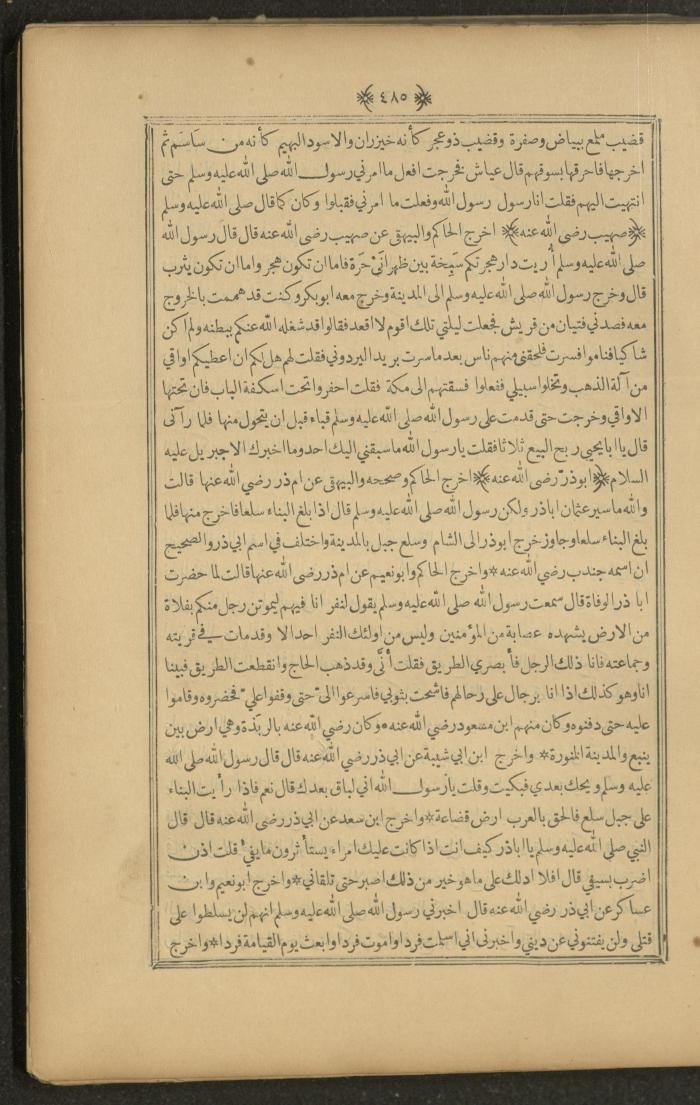 ﴿ ٤٨٥ ﴾
قضيب ملمع ببياض وصفرة وقضيب ذو عجر كأنه خيزران والاسود البهيم كأنه من ساسم ثم
اخرجها فاحرقها بسوقهم قال عياش فخرجت افعل ما امرني رسول الله صلى الله عليه وسلم حتى
انتهيت اليهم فقلت انا رسول رسول الله وفعلت ما امرني فقبلوا وكان كما قال صلى الله عليه وسلم
﴿صهيب رضى الله عنه﴾ اخرج الحاكم والبيهقى عن صهيب رضى الله عنه قال قال رسول الله
صلى الله عليه وسلم أريت دار هجرتكم سبخة بين ظهرانَيْ حَرة فاما ان تكون هجر واما ان تكون يثرب
قال وخرج رسول الله صلى الله عليه وسلم الى المدينة وخرج معه ابو بكر وكنت قد هممت بالخروج
معه فصدني فتيان من قريش فجعلت ليلتي تلك اقوم لا اقعد فقالوا قد شغله الله عنكم ببطنه ولم اكن
شاكيا فناموا فسرت فلحقني منهم ناس بعد ما سرت بريد اليردوني فقلت لهم هل لكم ان اعطيكم اواقي
من آلة الذهب وتخلوا سبيلي ففعلوا فسقتهم الى مكة فقلت احفروا تحت اسكفة الباب فان تحتها
الاواقي وخرجت حتى قدمت على رسول الله صلى الله عليه وسلم قباء قبل ان يتحول منها فلما رآنى
قال يا ابا يحيى ربح البيع ثلاثا فقلت يارسول الله ما سبقني اليك احد وما اخبرك الا جبريل عليه
السلام ﴿ابوذرّ رضى الله عنه﴾ اخرج الحاكم وصححه والبيهقى عن ام ذر رضي الله عنها قالت
والله ما سير عثمان اباذر ولكن رسول الله صلى الله عليه وسلم قال اذا بلغ البناء سلعا فاخرج منها فلما
بلغ البناء سلعا وجاوز خرج ابوذر الى الشام وسلع جبل بالمدينة واختلف في اسم ابي ذر والصحيح
ان اسمه جندب رضي الله عنه * واخرج الحاكم وابونعيم عن ام ذر رضى الله عنها قالت لما حضرت
ابا ذر الوفاة قال سمعت رسول الله صلى الله عليه وسلم يقول لنفر انا فيهم ليموتن رجل منكم بفلاة
من الارض يشهده عصابة من المؤمنين وليس من اولئك النفر احد الا وقد مات في قريته
وجماعته فانا ذلك الرجل فأبصري الطريق فقلت أنَّى وقد ذهب الحاج وانقطعت الطريق فبينا
انا وهو كذلك اذا انا برجال على رحالهم فاشحت بثوبي فاسرعوا الىّ حتى وقفوا عليّ فحضروه وقاموا
عليه حتى دفنوه وكان منهم ابن مسعود رضي الله عنه * وكان رضي الله عنه بالربَذة وهي ارض بين
ينبع والمدينة المنورة * واخرج ابن ابي شيبة عن ابي ذر رضي الله عنه قال قال رسول الله صلى الله
عليه وسلم ويحك بعدي فبكيت وقلت يارسول الله اني لباق بعدك قال نعم فاذا رأيت البناء
على جبل سلع فالحق بالعرب ارض قضاعة * واخرج ابن سعد عن ابي ذر رضى الله عنه قال قال
النبي صلى الله عليه وسلم يا اباذر كيف انت اذا كانت عليك امراء يستأثرون ما يفئ قلت اذن
اضرب بسيفي قال افلا ادلك على ما هو خير من ذلك اصبر حتى تلقاني * واخرج ابونعيم وابن
عساكر عن ابي ذر رضي الله عنه قال اخبرني رسول الله صلى الله عليه وسلم انهم لن يسلطوا على
قتلى ولن يفتنوني عن ديني واخبرنى اني اسلمت فردا واموت فردا وابعث يوم القيامة فردا * واخرج